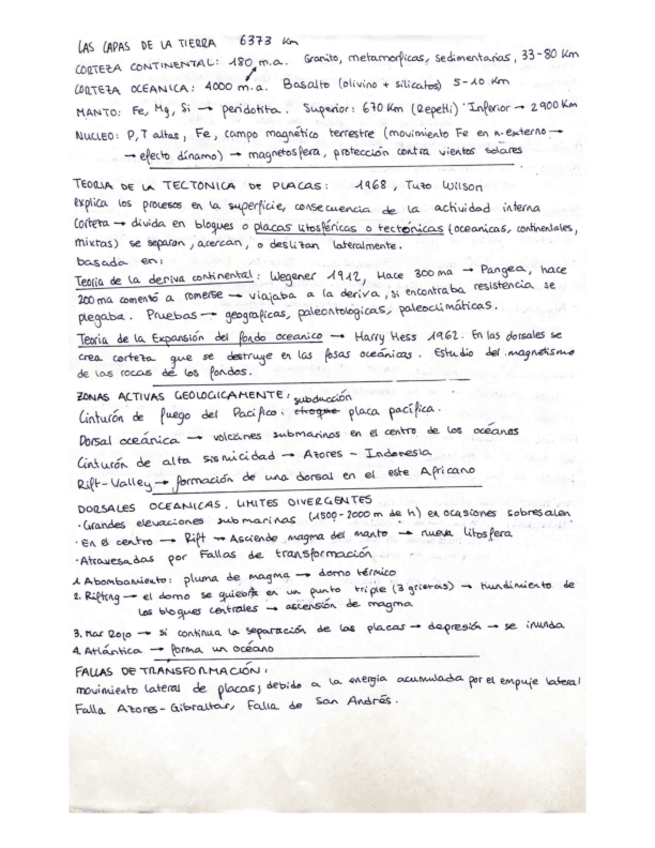 LAS CAPAS DE LA TIERRA 6373 Km
CORTEZA CONTINENTAL: 180 m.a. Granito, metamorficas, sedimentarias, 33-80 Km
CORTEZA OCEANICA: 4000 m.a. Basalto (olivino + silicatos) 5-10 Km
MANTO: Fe, Mg, Si → peridotita. Superior: 670 Km (Repetti) Inferior → 2900 Km
NUCLEO: P,T altas, Fe, campo magnético terrestre (movimiento Fe en n. externo →
→ efecto dínamo) → magnetosfera, protección contra vientos solares
TEORIA DE LA TECTONICA DE PLACAS: 1968, Tuzo Wilson
explica los procesos en la superficie, consecuencia de la actividad interna
Corteza → divida en bloques o placas litosféricas o tectónicas (oceanicas, continentales,
mixtas) se separan, acercan, o deslizan lateralmente.
basada en:
Teoría de la deriva continental: Wegener 1912, Hace 300 ma → Pangea, hace
200 ma comentó a romerse → viajaba a la deriva, si encontraba resistencia se
plegaba. Pruebas → geograficas, paleontológicas, paleoclimáticas.
Teoria de la Expansión del fondo oceanico → Harry Hess 1962. En las dorsales se
crea corteza que se destruye en las fosas oceánicas. Estudio del magnetismo
de las rocas de los fondos.
ZONAS ACTIVAS GEOLOGICAMENTE: subducción
Cinturón de fuego del Pacifico: choque placa pacífica.
Dorsal oceánica → volcanes submarinos en el centro de los océanos
Cinturón de alta sismicidad → Azores - Indonesia
Rift-Valley → formación de una dorsal en el este Africano
DORSALES OCEANICAS. LIMITES DIVERGENTES
· Grandes elevaciones submarinas (1500-2000 m de h) en ocasiones sobresalen
· En el centro → Rift → Asciende magma del manto → nueva litosfera
· Atravesadas por Fallas de transformación
1. Abombamiento: pluma de magma → domo térmico
2. Rifting → el domo se quiebra en un punto triple (3 grietas) → hundimiento de
los bloques centrales → ascensión de magma
3. Mar Rojo → si continua la separación de las placas → depresión → se inunda
4. Atlántica → forma un océano
FALLAS DE TRANSFORMACIÓN:
movimiento lateral de placas, debido a la energia acumulada por el empuje lateral
Falla Azores-Gibraltar, Falla de San Andrés.